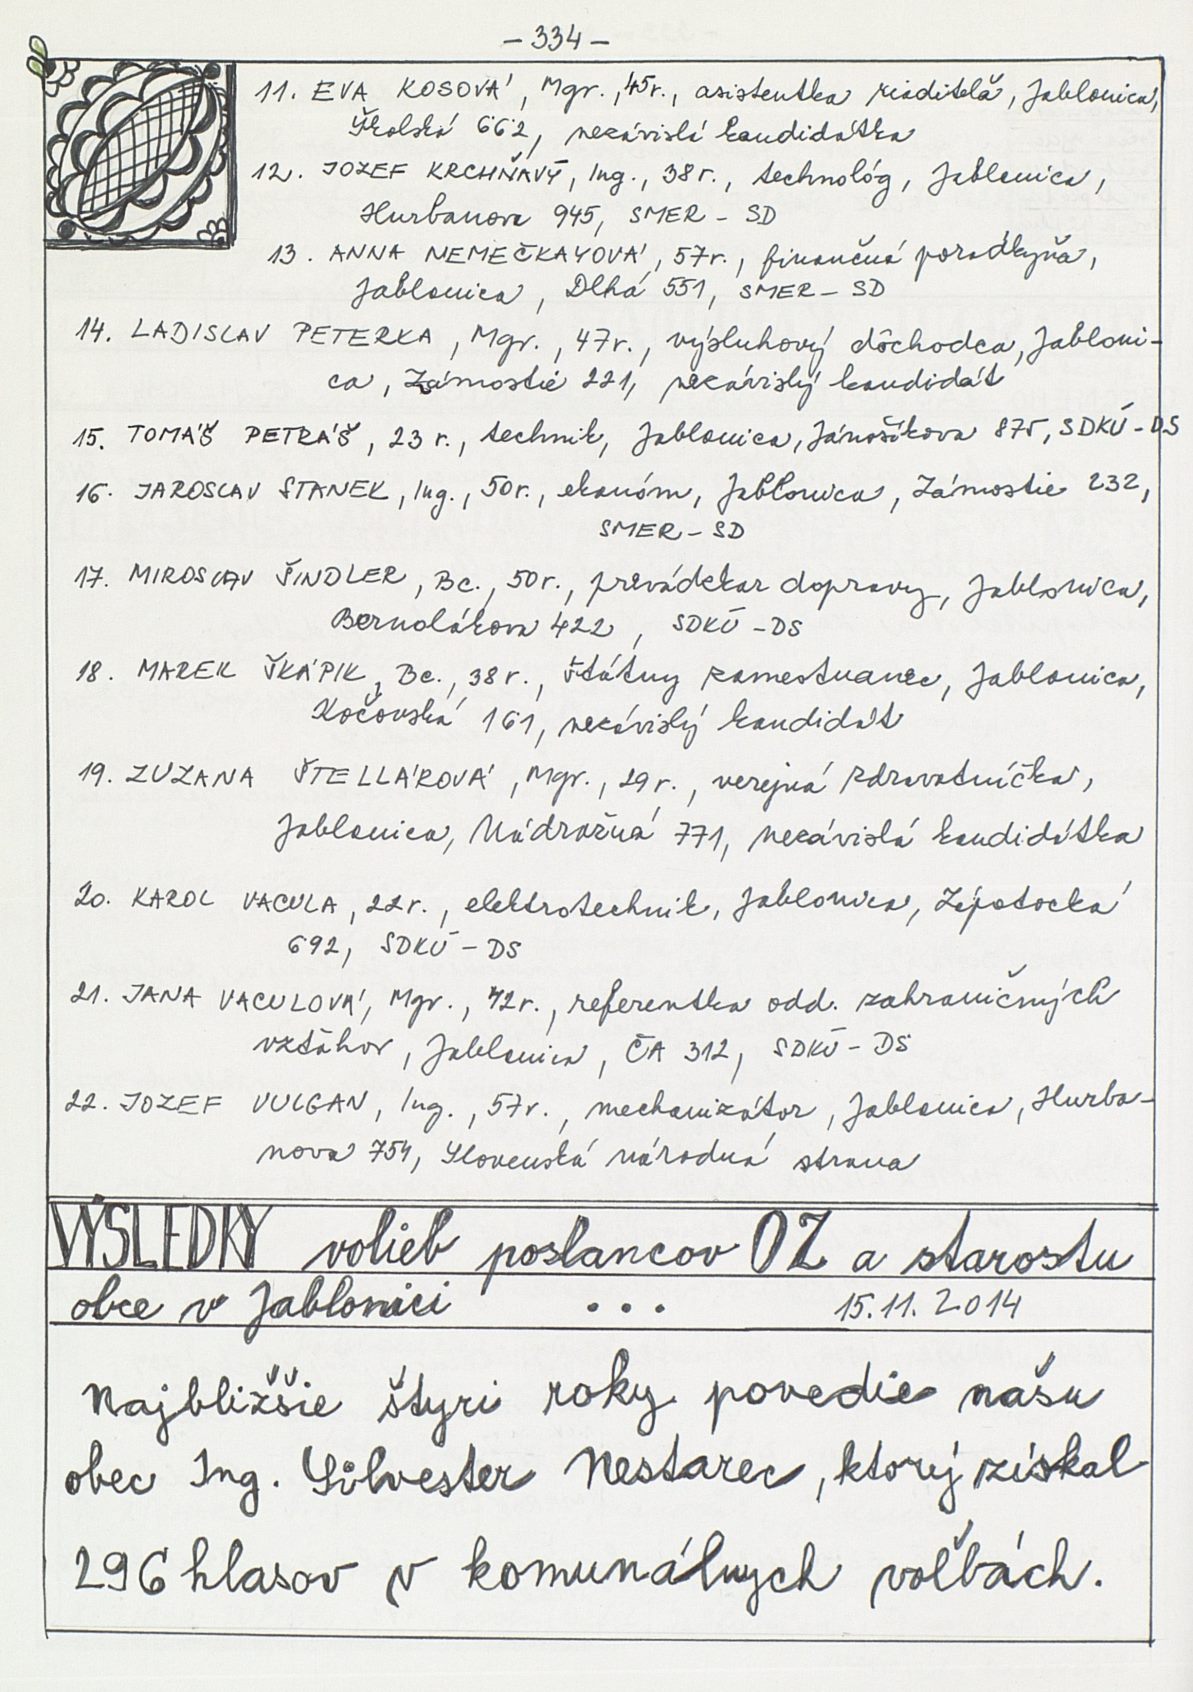 - 334 -
11. EVA KOSOVÁ, Mgr., 45r., asistentka riaditeľa, Jablonica,
Školská 662, nezávislá kandidátka
12. JOZEF KRCHŇAVÝ, Ing., 38r., technológ, Jablonica,
Hurbanova 945, SMER - SD
13. ANNA NEMEČKAYOVÁ, 57r., finančná poradkyňa,
Jablonica, Dlhá 551, SMER - SD
14. LADISLAV PETERKA, Mgr., 47r., výsluhový dôchodca, Jabloni-
ca, Zámostie 221, nezávislý kandidát
15. TOMÁŠ PETRÁŠ, 23 r., technik, Jablonica, Jánošíkova 875, SDKÚ - DS
16. JAROSLAV STANEK, Ing., 50r., ekonóm, Jablonica, Zámostie 232,
SMER - SD
17. MIROSLAV ŠINDLER, Bc., 50r., prevádzkar dopravy, Jablonica,
Bernolákova 422, SDKÚ - DS
18. MAREK ŠKÁPIK, Bc., 38 r., štátny zamestnanec, Jablonica,
Kočovská 161, nezávislý kandidát
19. ZUZANA ŠTELLÁROVÁ, Mgr., 29 r., verejná zdravotníčka,
Jablonica, Nádražná 771, nezávislá kandidátka
20. KAROL VACULA, 22r., elektrotechnik, Jablonica, Zápotocká
692, SDKÚ - DS
21. JANA VACULOVÁ, Mgr., 42r., referentka odd. zahraničných
vzťahov, Jablonica, ČA 312, SDKÚ - DS
22. JOZEF VULGAN, Ing., 57r., mechanizátor, Jablonica, Hurba-
nova 754, Slovenská národná strana
VÝSLEDKY volieb poslancov OZ a starostu
obce v Jablonici ... 15.11.2014
Najbližšie štyri roky povedie našu
obec Ing. Silvester Nestarec, ktorý získal
296 hlasov v komunálnych voľbách.